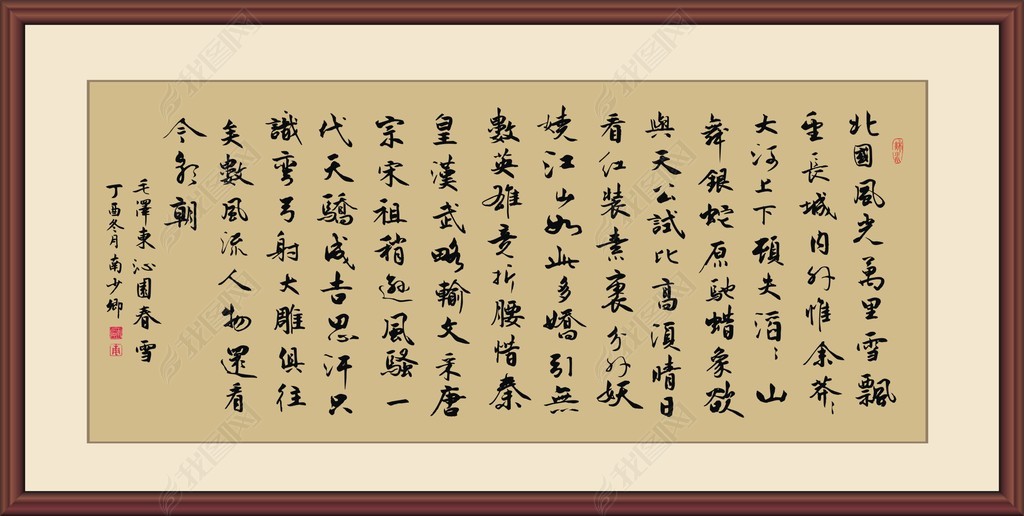 北國風光萬里雪飄
望長城内外惟余莽〻
大河上下頓失滔〻山
舞銀蛇原馳蜡象欲
與天公試比高須晴日
看红裝素裹分外妖
嬈江山如此多嬌引無
數英雄竞折腰惜秦
皇漢武略輸文采唐
宗宋祖稍遜風騷一
代天驕成吉思汗只
識彎弓射大雕俱往
矣數風流人物還看
今朝
毛澤東沁園春雪
丁酉冬月南少卿